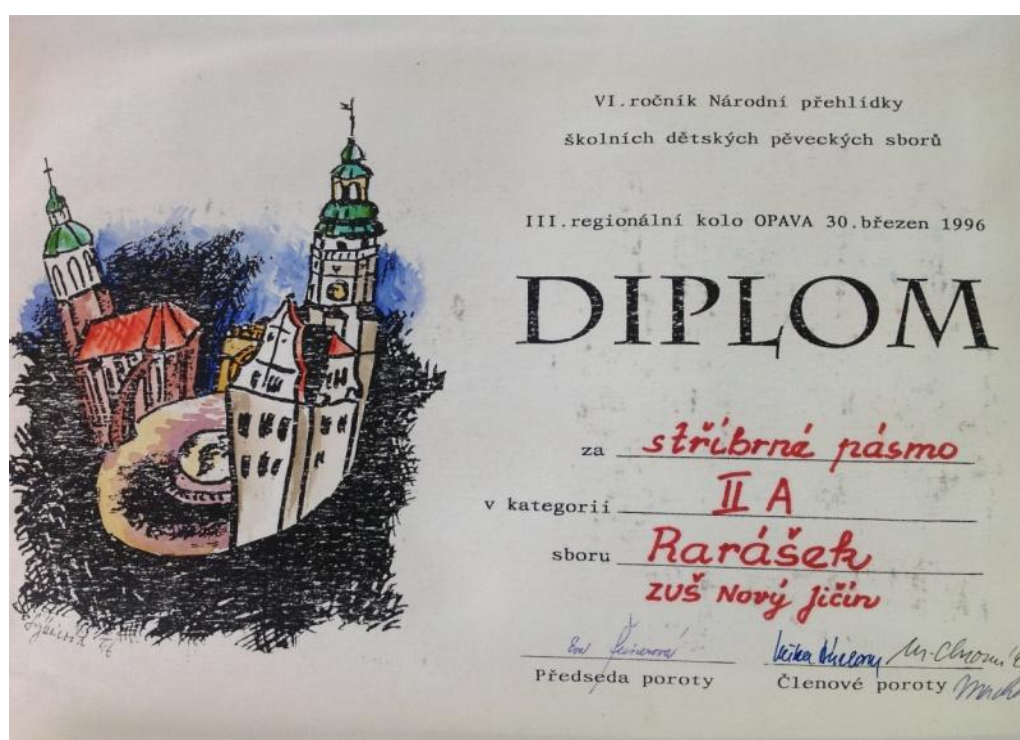 VI.ročník Národní přehlídky
školních dětských pěveckých sborů
III.regionální kolo OPAVA 30.březen 1996
DIPLOM
za stříbrné pásmo
v kategorii II A
sboru Rarášek
ZUŠ Nový Jičín
Předseda poroty
Členové poroty